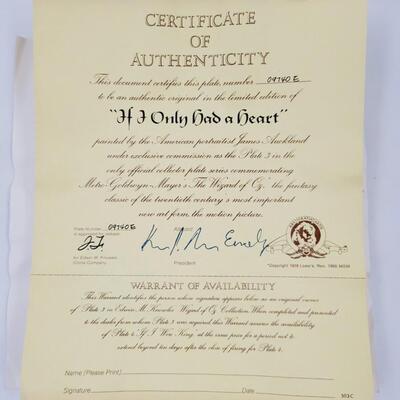 CERTIFICATE
OF
AUTHENTICITY
This document certifies this plate, number 09740E
to be an authentic original in the limited edition of
"If I Only Had a Heart"
painted by the American portraitist James Auckland
under exclusive commission as the Plate 3 in the
only official collector plate series commemorating
Metro-Goldwyn-Mayer's The Wizard of Oz, the fantasy
classic of the twentieth century's most important
new art form the motion picture.
Plate Number 09740E
is approved for release
for Edwin M. Knowles
China Company
Attested
President
WARRANT OF AVAILABILITY
This Warrant identifies the person whose signature appears below as an original owner
of Plate 3 in Edwin M. Knowles Wizard of Oz Collection. When completed and presented
to the dealer from whom Plate 3 was acquired this Warrant assures the availability
of Plate 4 "If I Were King" at the same price for a period not to
extend beyond ten days after the close of firing for Plate 4.
Name (Please Print)
Signature Date
303-C